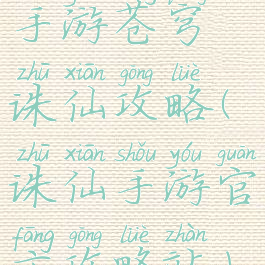 手游苍穹
zhū xiān gōng lüè
诛仙攻略(
zhū xiān shǒu yóu guān
诛仙手游官
fāng gōng lüè zhàn
方攻略站)